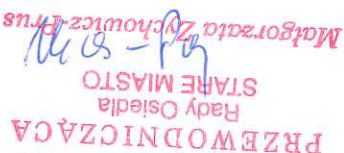 PRZEWODNICZĄCA
Rady Osiedla
STARE MIASTO
Małgorzata Żychowicz-Prus